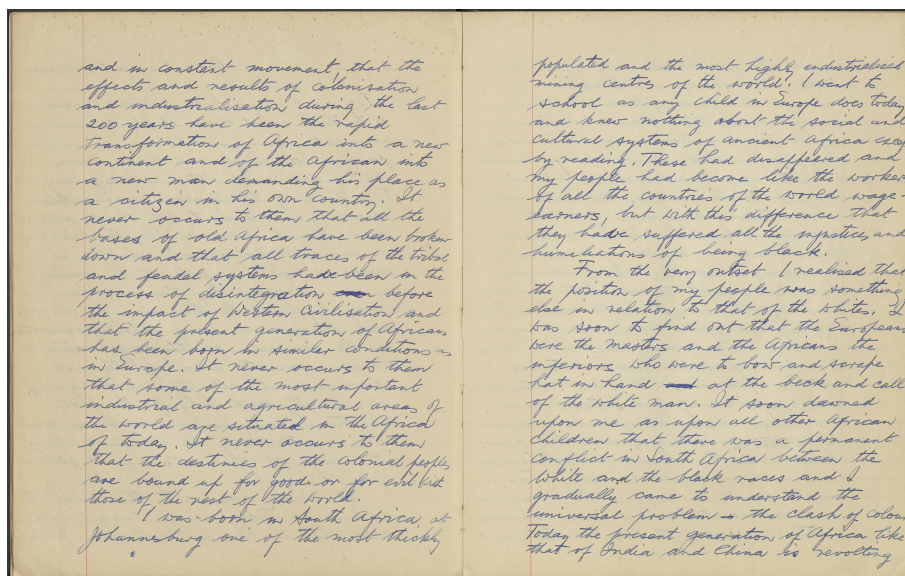 and in constant movement, that the
effects and results of colonisation
and industrialisation during the last
200 years have been the rapid
transformation of Africa into a new
continent and of the African into
a new man demanding his place as
a citizen in his own country. It
never occurs to them that all the
bases of old Africa have been broken
down and that all traces of the tribal
and feudal systems had been in the
process of disintegration before
the impact of Western Civilisation and
that the present generation of Africans
has been born in similar conditions as
in Europe. It never occurs to them
that some of the most important
industrial and agricultural areas of
the world are situated in the Africa
of today. It never occurs to them
that the destinies of the colonial peoples
are bound up for good or for evil with
those of the rest of the world.
I was born in South Africa, at
Johannesburg one of the most thickly
populated and the most highly industrialised
mining centres of the world. I went to
school as any child in Europe does today
and knew nothing about the social and
cultural systems of ancient Africa excep
by reading. These had disappeared and
my people had become like the worker
of all the countries of the world wage-
earners, but with this difference that
they had suffered all the injustices and
humiliations of being black.
From the very outset I realised that
the position of my people was something
else in relation to that of the whites. I
was soon to find out that the Europeans
were the masters and the Africans the
inferiors who were to bow and scrape
hat in hand at the beck and call
of the white man. It soon dawned
upon me as upon all other African
children that there was a permanent
conflict in South Africa between the
white and the black races and I
gradually came to understand the
universal problem - the clash of colour
Today the present generation of Africa like
that of India and China is revolting